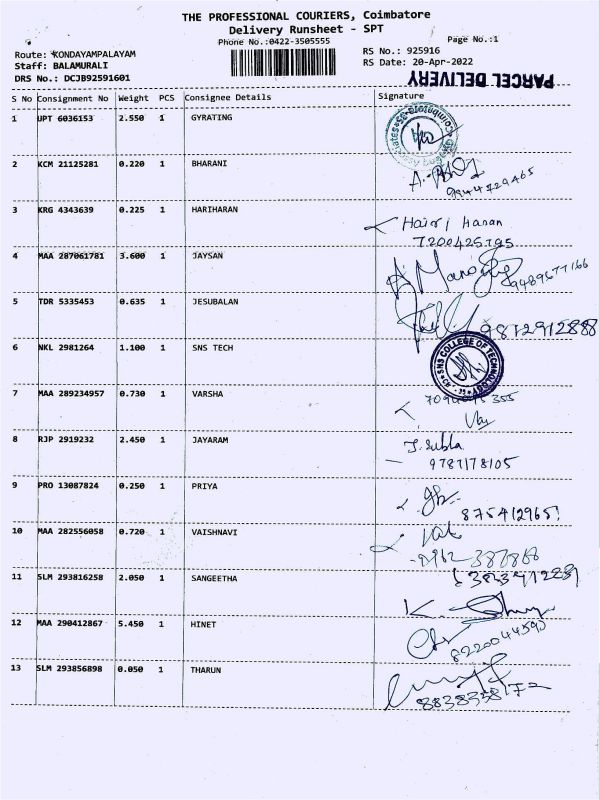 THE PROFESSIONAL COURIERS, Coimbatore
Delivery Runsheet - SPT
Phone No.:0422-3505555
Page No.:1
Route: *KONDAYAMPALAYAM
RS No.: 925916
Staff: BALAMURALI
RS Date: 20-Apr-2022
DRS No.: DCJB92591601
PARCEL DELIVERY
S No Consignment No Weight PCS Consignee Details Signature
1 UPT 6036153 2.550 1 GYRATING
2 KCM 21125281 0.220 1 BHARANI
9944729465
3 KRG 4343639 0.225 1 HARIHARAN
Hari Haran
7200425795
4 MAA 287061781 3.600 1 JAYSAN
9489677166
5 TDR 5335453 0.635 1 JESUBALAN
9872912888
6 NKL 2981264 1.100 1 SNS TECH
SNS COLLEGE OF TECHNOLOGY
7 MAA 289234957 0.730 1 VARSHA
8 RJP 2919232 2.450 1 JAYARAM
J. Subla
9787178105
9 PRO 13087824 0.250 1 PRIYA
8754129651
10 MAA 282556058 0.720 1 VAISHNAVI
11 SLM 293816258 2.050 1 SANGEETHA
12 MAA 290412867 5.450 1 HINET
8220044590
13 SLM 293856898 0.050 1 THARUN
8838358172